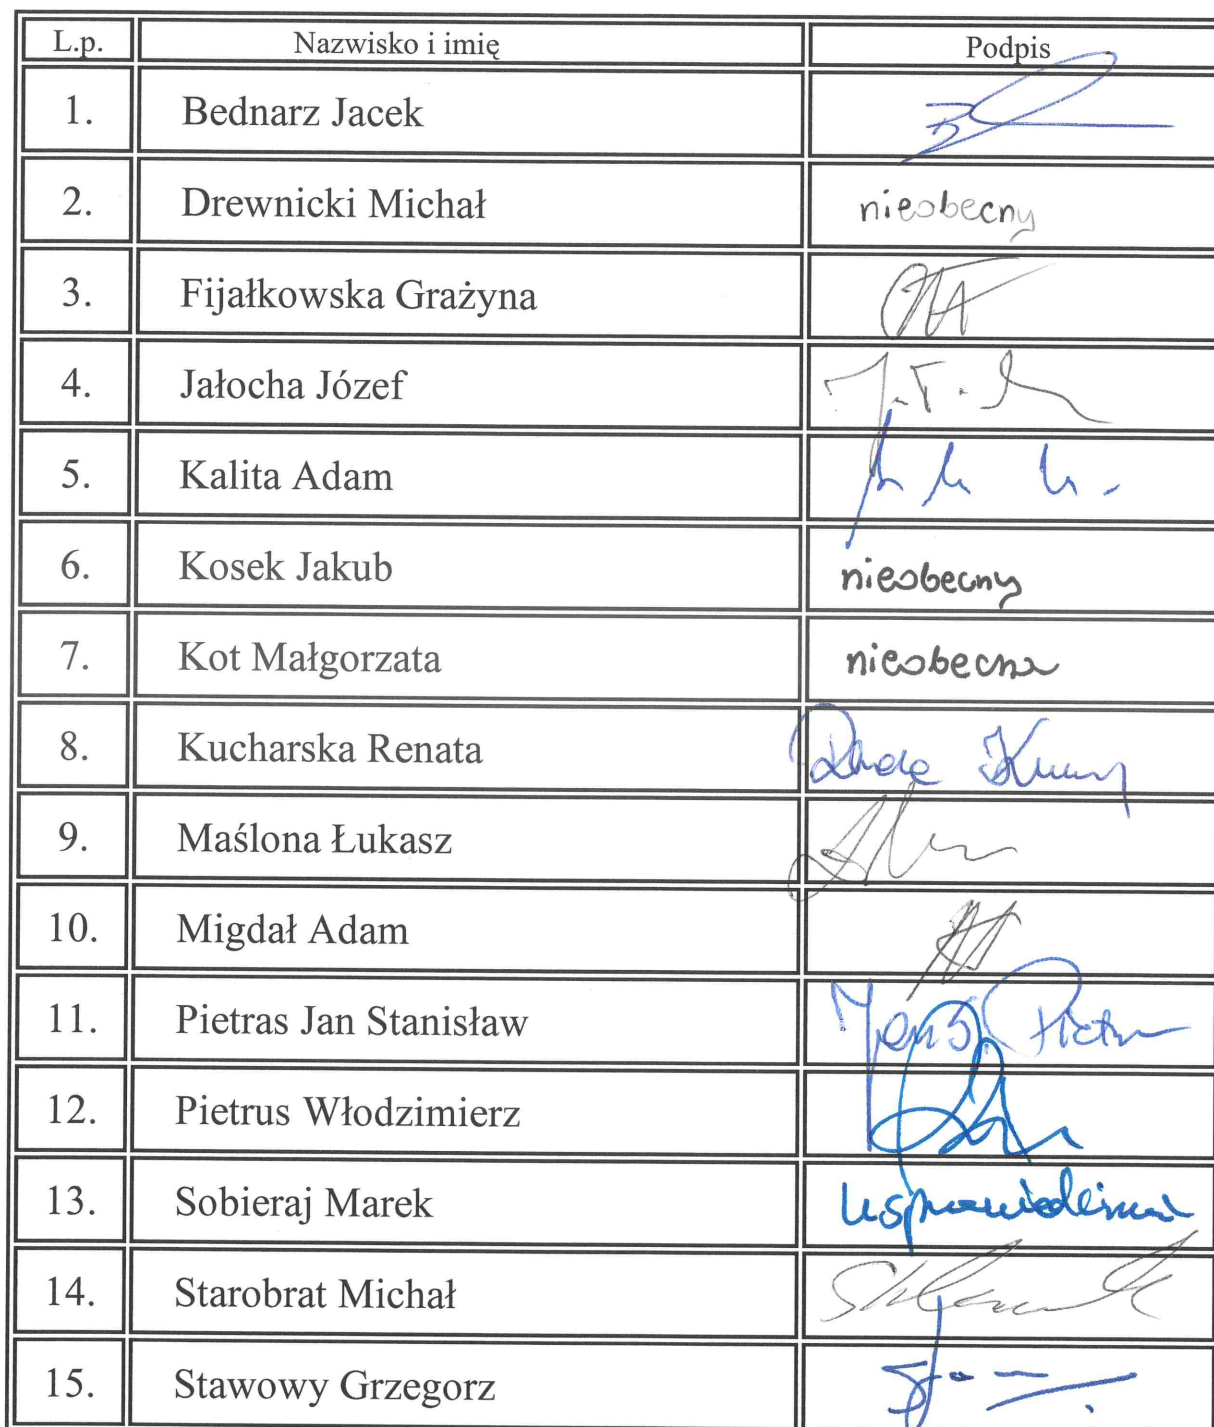 L.p. Nazwisko i imię Podpis
1. Bednarz Jacek
2. Drewnicki Michał nieobecny
3. Fijałkowska Grażyna
4. Jałocha Józef
5. Kalita Adam
6. Kosek Jakub nieobecny
7. Kot Małgorzata nieobecna
8. Kucharska Renata
9. Maślona Łukasz
10. Migdał Adam
11. Pietras Jan Stanisław
12. Pietrus Włodzimierz
13. Sobieraj Marek
14. Starobrat Michał
15. Stawowy Grzegorz